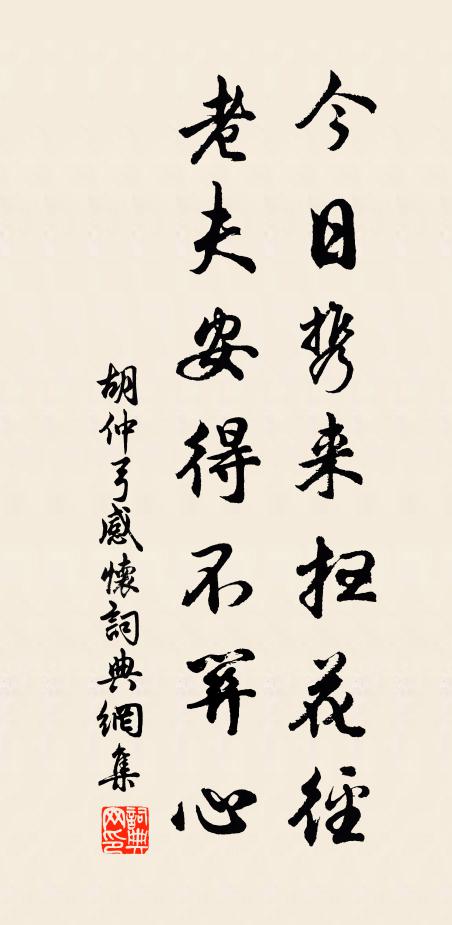 今日携来扫花徑
老夫安得不關心
胡仲弓感懷詞典網集
詞典
网印